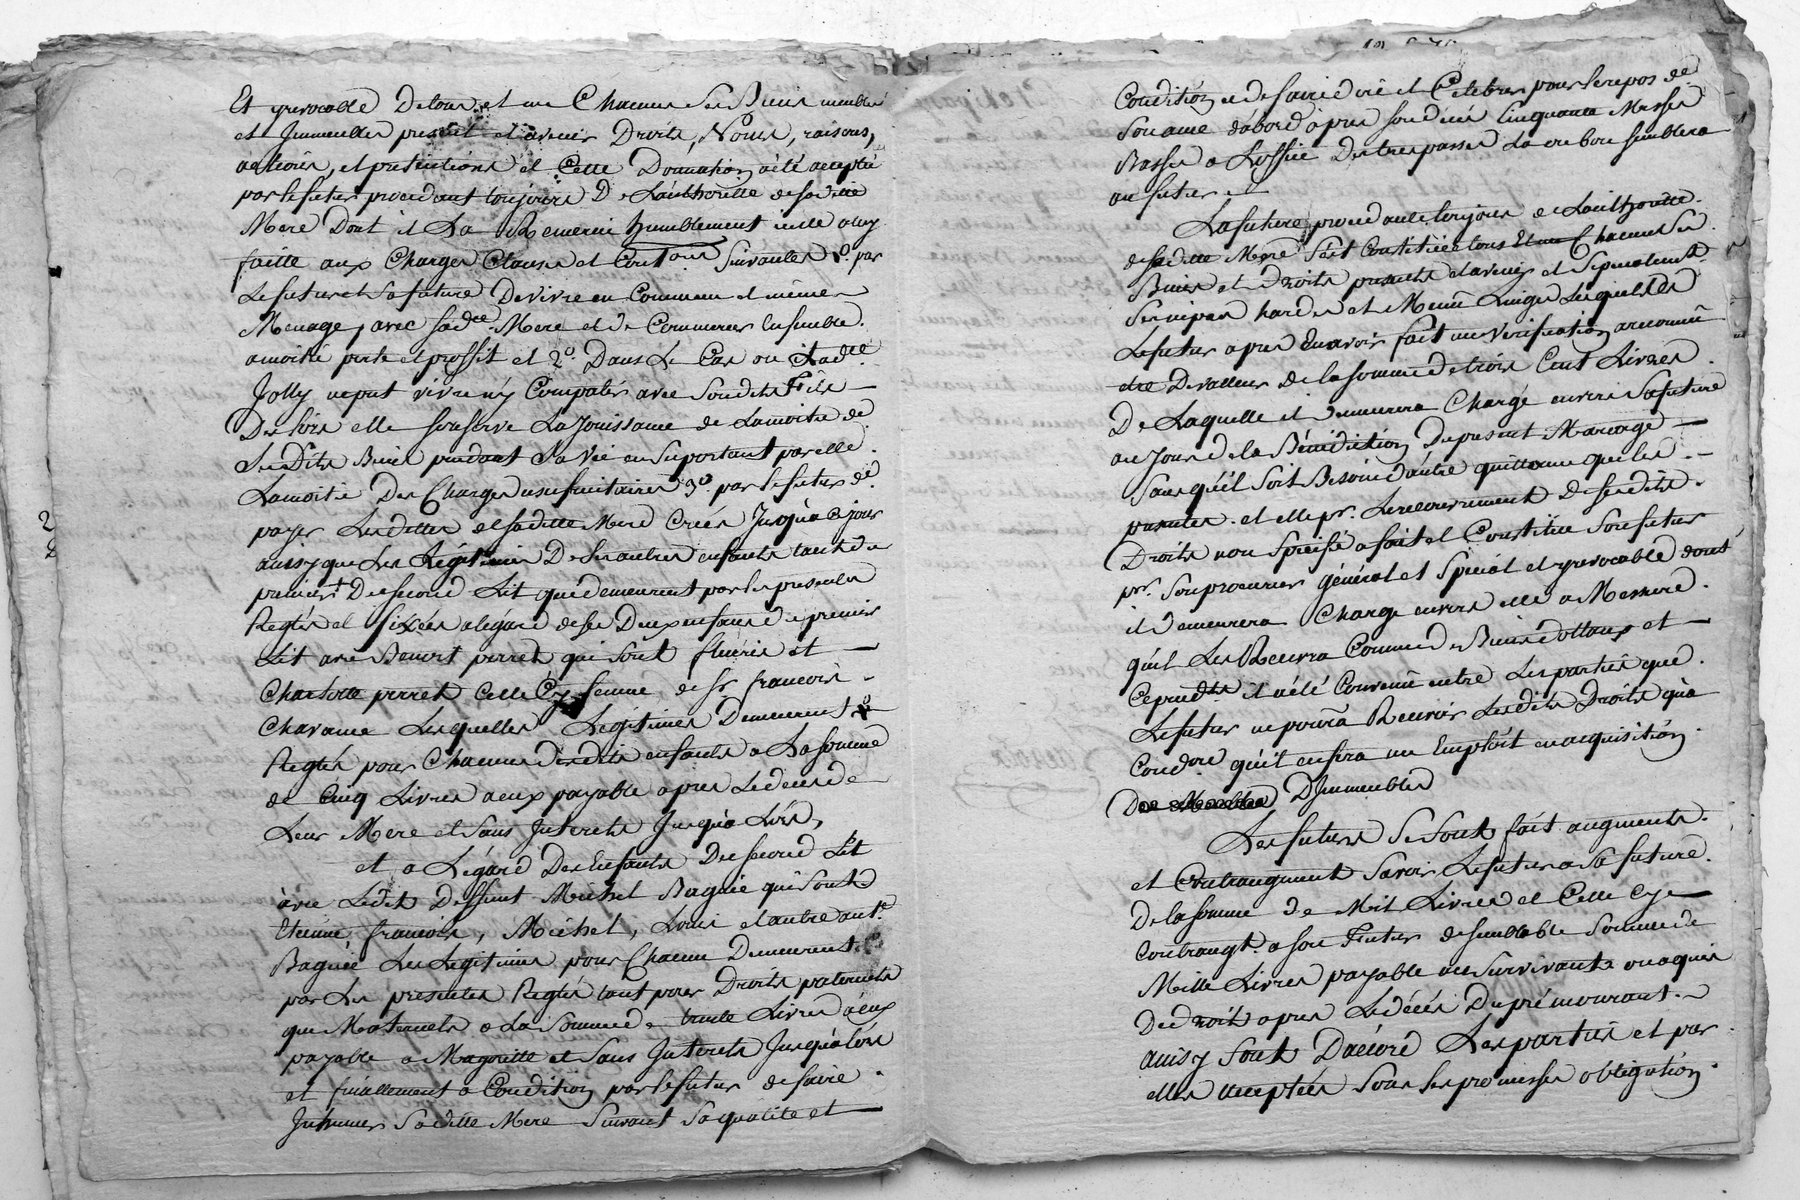 Et yrevocable De tous et un Chacuns Ses Biens meubles
et Jmmeubles present et avenir Droits, Noms, raisons,
actions, et pretentions et Cette Donnation a été acceptée
par le futur procedant toujours De Lauthorité de sadite
Mere Dont il La Remercié humblement icelle a luy
faitte aux Charges Clauses et Con.ons Suivantes 1.o par
Le futur et Sa future De vivre en Commun et même
Menage, avec sad.te Mere et de Commercer Ensemble.
a moitié perte et proffit et 2.o Dans Le Cas ou Lad.te
Jolly ne put vivre ny Compatir avec Son dit Fils
Des lors elle se reserve La Jouissance de La moitié de
Sesdits Biens pendant Sa vie en Suportant par elle
La moitié Des Charges usufruitaires 3.o par le futur de
payer Les dettes de sadite Mere Créés Jusqu'à Ce jour
ainsy que Les Legitimes De ses autres enfants tant du
premier Que second Lit qui demeurent par les presentes
Reglés et fixées a légard de ses Deux enfans du premier
Lit avec Benoit perret qui sont fleurie et
Charlotte perret Celle Cy femme de Sr francois
Charanne Lesquelles Legitimes Demeurent
Reglés pour Chacun Desdits enfants a La somme
de Cinq Livres a eux payable apres Le deces de
Leur Mere et Sans Jnterets Jusqu'a Lors,
et a Légard Des Enfants Du second Lit
avec Ledit Deffunt Michel Baguié qui Sont
Etienne francois, Michel, Louis et autre ant.e
Baguié Les Legitimes pour Chacun Demeurent
par Les presentes Reglés tant pour Droits paternels
que Maternels a La Somme de trente Livres a eux
payable a Majorité et Sans Jnterets Jusqu'a lors
et finallement a Condition par le futur de faire
Jnhumer Sadite Mere Suivant Sa qualité et
Condition et de faire dire et Celebrer pour le repos de
Son ame d'abord apres son decés Cinquante Messes
Basses a L'office Des trepassés La ou bon semblera
au futur
La future procedante toujours de L'authorité
de sadite Mere S'est Constituée tous Et un Chacuns Ses
Biens et Droits presents et avenir et Specialement
Ses nipes hardes et Menu Linges Lesquels Le
Le futur apres En avoir fait une verification a reconnu
etre De valleur de la somme de trois Cent Livres
De Laquelle il demeurera Chargé envers Sa future
au Jour de la Bénédiction Du present Mariage
Sans qu'il Soit Besoin d'autre quittance que les
presentes. et elle pr. Le recouvrement De ses dits
Droits non Spécifié a fait et Constitüé Son futur
pr. Son procureur général et Spécial et yrevocable dont
il demeurera Chargé envers elle a Mesure
qu'il Les Recevra Comme de Biens dottaux et
Cepend.t il a été Convenü entre Les parties que
Le futur ne pourra Recevoir Lesdits Droits qu'a
Con.don qu'il en fera un Emploit en acquisition
D'Jmmeubles
Les futurs Se Sont fait augment
et Contraugment Savoir Le futur a Sa future
De la somme de Mil Livres et Celle Cy en
Contraugt. a son Futur de semblable Somme de
Mille Livres payable au Survivant ou aquis
De droit apres Le décés Du pré mourant.
ainsy Sont D'acord Les parties et par
elles acceptées Sous Les promesses obligation